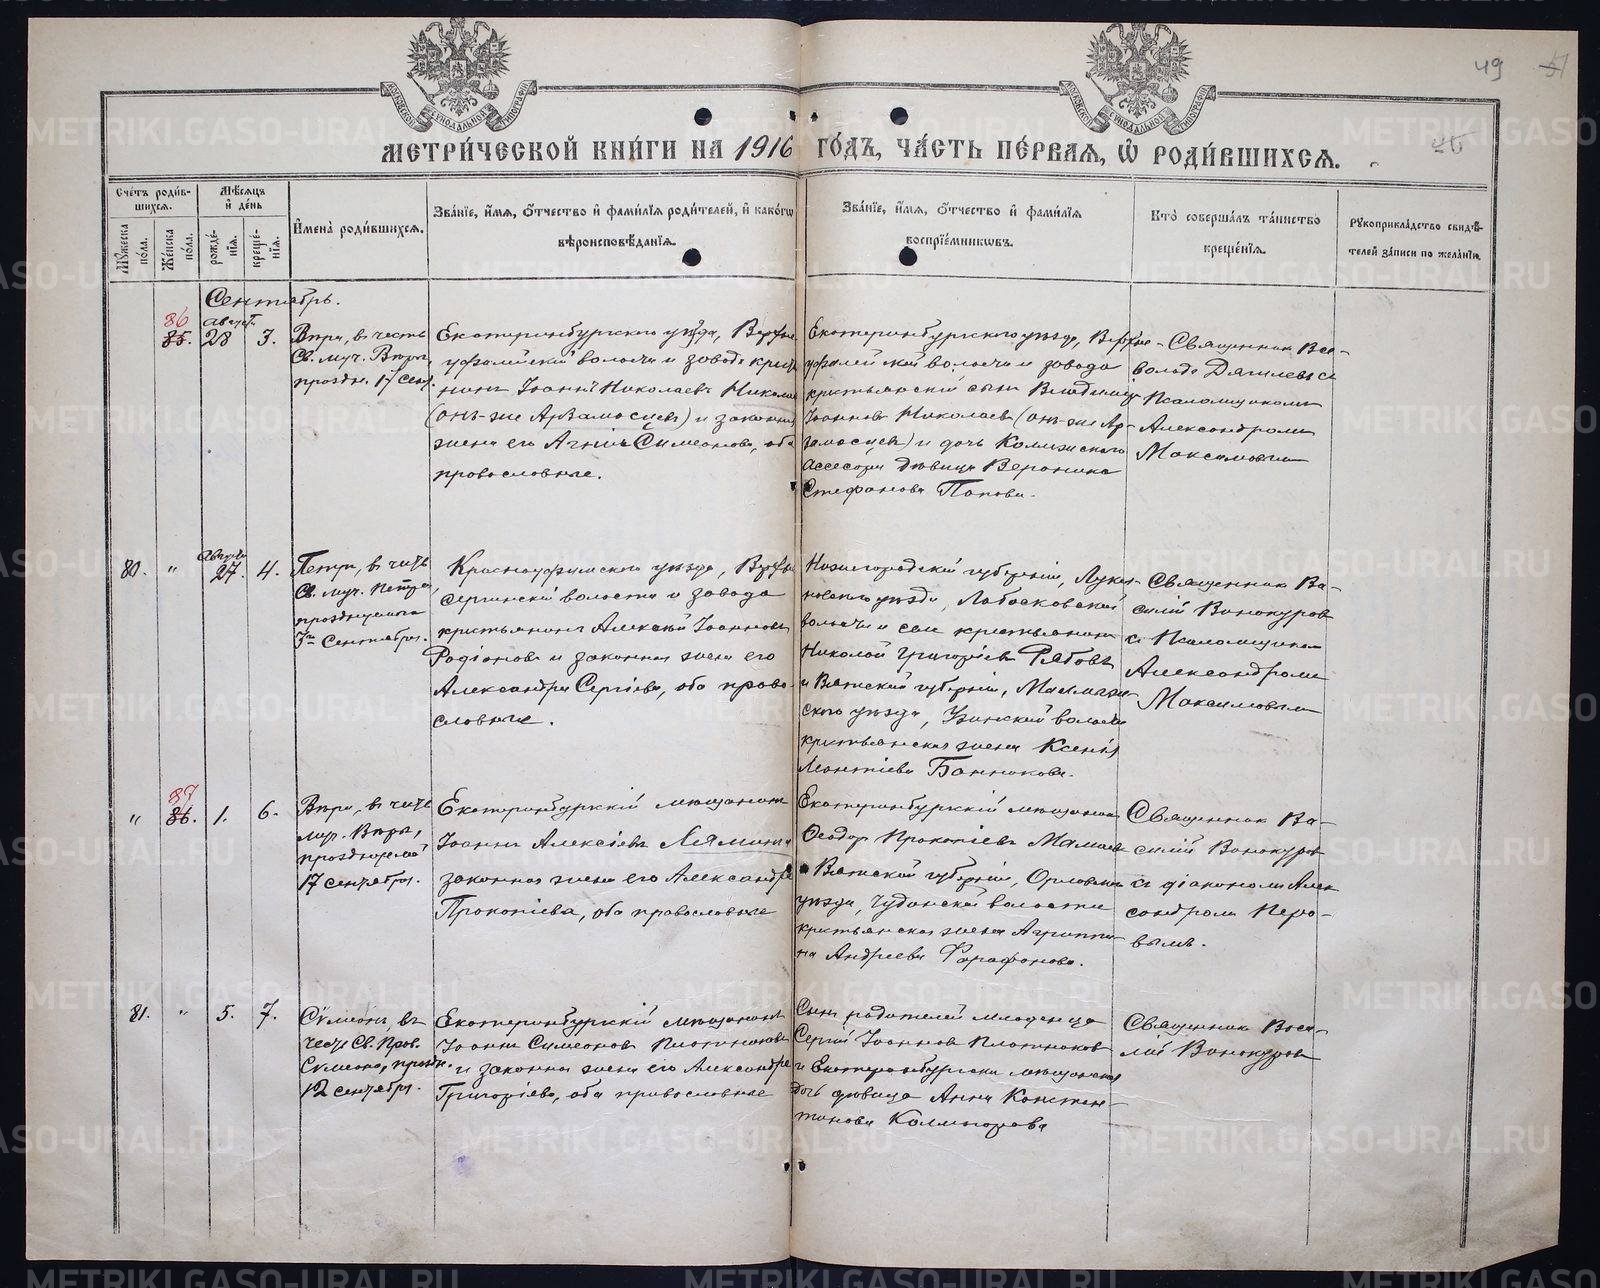 49 51
46
МЕТРИ́ЧЕСКОЙ КНИ́ГИ НА 1916 ГО́ДЪ, ЧА́СТЬ ПЕ́РВАЯ, Ѽ РОДИ́ВШИХСЯ.
Сче́тъ роди́в-
шихся.
Мѣ́сяцъ
и҆ де́нь
Мꙋ́жеска
по́ла.
Же́нска
по́ла.
рожде́-
нїя.
креще́-
нїя.
И҆мена̀ роди́вшихся.
Зва́нїе, и҆́мя, ѻ҆́тчество и҆ фами́лїя роди́телей, и҆ како́гѡ
вѣроисповѣ́данїя.
Зва́нїе, и҆́мя, ѻ҆́тчество и҆ фами́лїя
воспрїе́мниковъ.
Кто̀ соверша́лъ та́инство
креще́нїя.
Рꙋкоприкла́дство свидѣ́-
телей за́писи по жела́нїю.
Сентябрь.
86
85.
Август.
28
3.
Вѣра, въ честь
Св. муч. Вѣры,
праздн. 17 сент.
Екатеринбургскаго уѣзда, Верхне-
уфалейской волости и завода кресть-
янинъ Іоаннъ Николаевъ Николаевъ
(онъ-же Арзамасцевъ) и законная
жена его Агнія Симеонова, оба
православные.
Екатеринбургскаго уѣзда, Верхне-
уфалейской волости и завода
крестьянскій сынъ Владимиръ
Іоанновъ Николаевъ (онъ-же Ар-
замасцевъ) и дочь Коллежскаго
Ассесора дѣвица Вероника
Стефанова Попова.
Священник Все-
володъ Дягилевъ съ
Псаломщикомъ
Александромъ
Максимовымъ
80.
"
Августа
27.
4.
Петръ, въ честь
Св. муч. Петра,
празднуемаго
3го Сентября.
Красноуфимскаго уѣзда, Верхне-
сергинской волости и завода
крестьянинъ Алексѣй Іоанновъ
Родіоновъ и законная жена его
Александра Сергіева, оба право-
славные.
Нижегородской губерніи, Лукоя-
новскаго уѣзда,
волости и села крестьянинъ
Николай Григоріевъ Рябовъ
и Вятской губерніи, Малмыж-
скаго уѣзда, Узинской волости
крестьянская жена Ксенія
Леонтіева Банникова.
Священник Ва-
силій Винокуровъ
съ Псаломщикомъ
Александромъ
Максимовымъ
"
87
86.
1.
6.
Вѣра, въ честь
муч. Вѣры,
празднуемой
17 сентября.
Екатеринбургскій мѣщанинъ
Іоаннъ Алексіевъ Ляминъ и
законная жена его Александра
Прокопіева, оба православные
Екатеринбургскій мѣщанинъ
Ѳеодоръ Прокопіевъ Мамаевъ
и Вятской губерніи, Орловскаго
уѣзда, Чудинской волости
крестьянская жена Агриппи-
на Андреева Фарафонова.
Священник Ва-
силій Винокуровъ
съ діакономъ Алек-
сандромъ Перо-
вымъ.
81.
"
5.
7.
Сѵмеонъ, въ
честь Св. Прав.
Сѵмеона, праздн.
12 сентября.
Екатеринбургскій мѣщанинъ
Іоаннъ Симеоновъ Плотниковъ
и законная жена его Александра
Григоріева, оба православные
Сынъ родителей младенца
Сергій Іоанновъ Плотниковъ
и Екатеринбургская мѣщанская
дочь дѣвица Анна Констан-
тинова Колмогорова
Священник Васи-
лій Винокуровъ